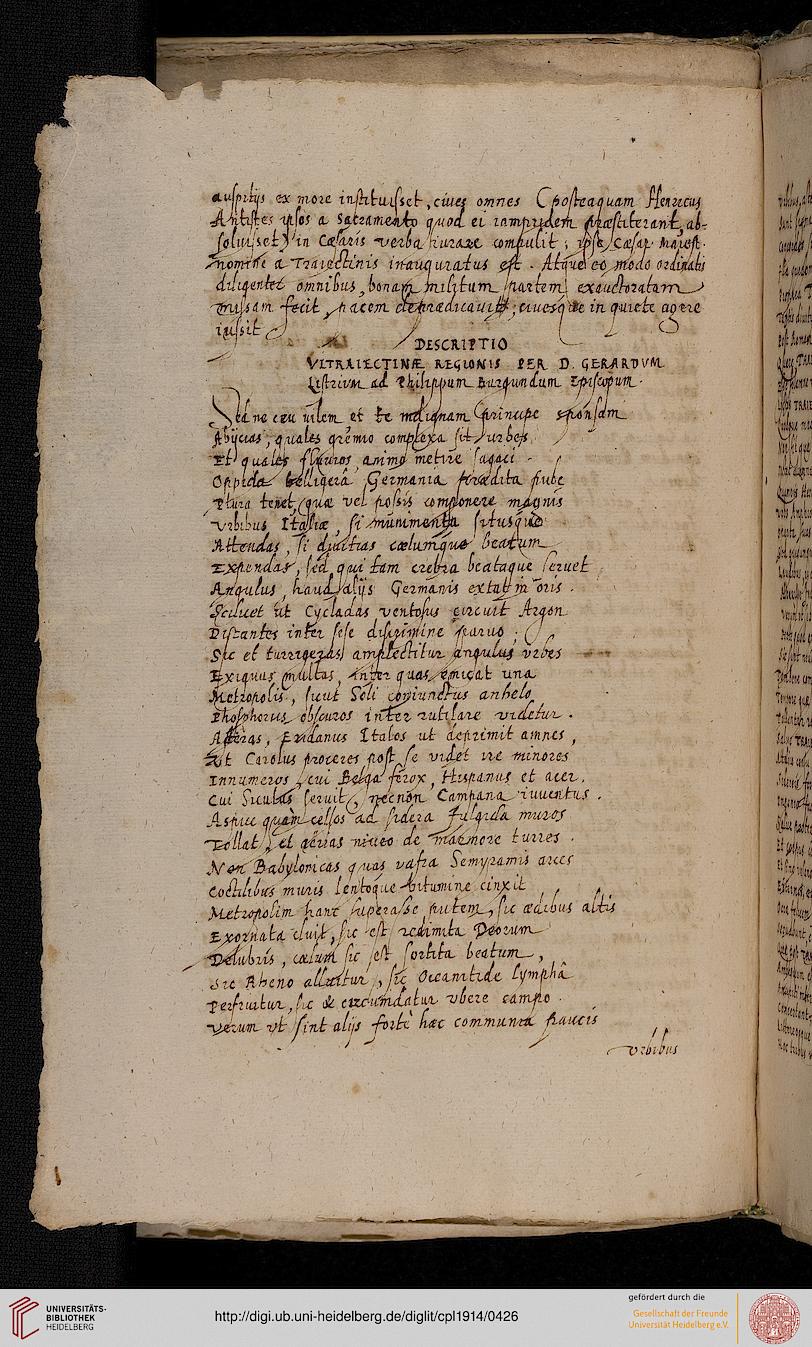 auspitijs ex more instituisset, ciues omnes (posteaquam Henricus
Antistes ipsos a sacramento quod ei iampridem præstiterant, ab-
soluisset) in Cæsaris verba iurare compulit; ipse Cæsar Maiest.
nomine a Traiectinis inauguratus est. Atque eo modo ordinatis
diligenter omnibus, bonam militum partem exauctoratam
missam fecit, pacem deprædicauit, ciuesque in quiete agere
iussit
DESCRIPTIO
VLTRAIECTINÆ REGIONIS PER D. GERARDVM
Listrium ad Philippum Burgundum Episcopum.
Sed ne ceu uilem, et te indignam principe sponsam
Abijcias, quales gremio complexa sit urbes
Et quales fluuios, animo metire sagaci.
Oppida belligerâ Germania prædita pube
Plura tenet, quæ vel possis componere magnis
Vrbibus Italiæ, si munimenta situsque
Attendas, si diuitias cælumque beatum
Expendas, sed qui tam crebra beataque seruet
Angulus, haud alijs Germanis extat in oris.
Scilicet ut Cycladas ventosus circuit Argon
Distantes inter sese discrimine paruo;
Sic et turrigeras amplectitur angulus vrbes
Exiguus multas, inter quas emicat una
Metropolis, sicut Soli coniunctus anhelo
Phosphorus obscuros inter rutilare videtur.
Asteras, Eridanus Italos ut deprimit amnes,
Ut Carolus proceres post se videt ire minores
Innumeros, cui Belga ferox, Hispanus et acer,
Cui Siculus seruit, necnon Campana iuuentus.
Aspice quàm celsos ad sidera fulgida muros
Tollat, et aërias niueo de marmore turres.
Non Babylonicas quas vafra Semyramis arces
Coctilibus muris lentoque bitumine cinxit
Metropolim hanc superasse putem, sic ædibus altis
Exornata cluit, sic est redimita Deorum
Delubris, cælum sic est sortita beatum,
Sic Rheno alluitur, sic Oceanitide lymphâ
Perfruitur, sic & circumdatur vbere campo.
Verum vt sint alijs fortè hæc communia paucis
vrbibus
UNIVERSITÄTS-
BIBLIOTHEK
HEIDELBERG
http://digi.ub.uni-heidelberg.de/diglit/cpl1914/0426
gefördert durch die
Gesellschaft der Freunde
Universität Heidelberg e.V.